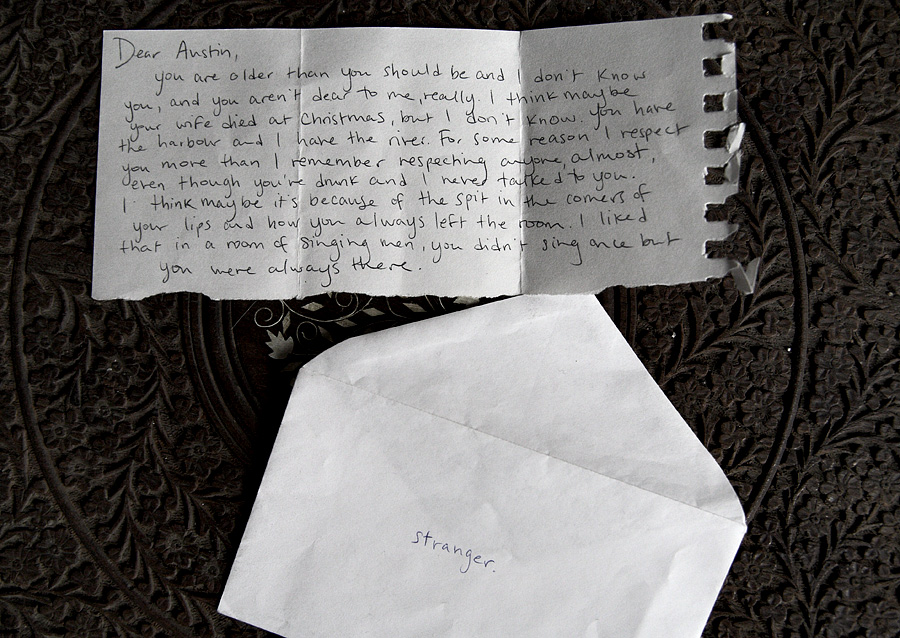 Dear Austin,
you are older than you should be and I don't know
you, and you aren't dear to me, really. I think maybe
your wife died at Christmas, but I don't know. You have
the harbour and I have the river. For some reason I respect
you more than I remember respecting anyone, almost,
even though you're drunk and I never talked to you.
I think maybe it's because of the spit in the corners of
your lips and how you always left the room. I liked
that in a room of singing men, you didn't sing once but
you were always there.
stranger.